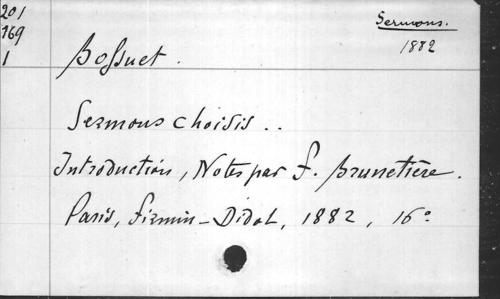 201
769
1
Sermons.
1882
Bossuet.
Sermons choisis ..
Introduction, Notes par F. Brunetière.
Paris, Firmin-Didot, 1882, 16°